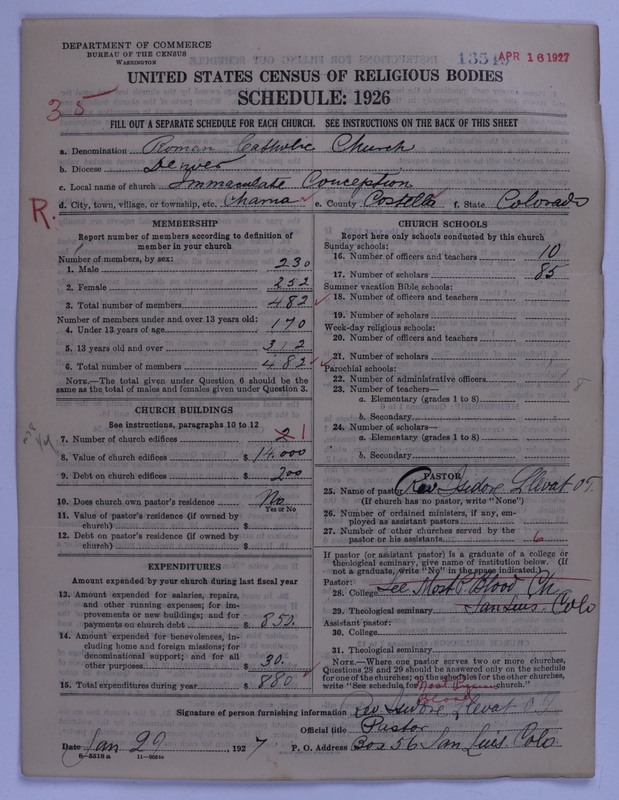 DEPARTMENT OF COMMERCE
BUREAU OF THE CENSUS
WASHINGTON
APR 16 1927
UNITED STATES CENSUS OF RELIGIOUS BODIES
SCHEDULE: 1926
35
FILL OUT A SEPARATE SCHEDULE FOR EACH CHURCH. SEE INSTRUCTIONS ON THE BACK OF THIS SHEET
a. Denomination Roman Catholic Church
b. Diocese Denver
c. Local name of church Immaculate Conception
R.
d. City, town, village, or township, etc. Chama e. County Costilla f. State Colorado
MEMBERSHIP
Report number of members according to definition of
member in your church
Number of members, by sex:
1. Male 230
2. Female 252
3. Total number of members 482
Number of members under and over 13 years old:
4. Under 13 years of age 170
5. 13 years old and over 312
6. Total number of members 482
NOTE.—The total given under Question 6 should be the
same as the total of males and females given under Question 3.
CHURCH BUILDINGS
See instructions, paragraphs 10 to 12
7. Number of church edifices 2 1
8. Value of church edifices $ 14.000
9. Debt on church edifices $ 200
10. Does church own pastor's residence No
Yes or No
11. Value of pastor's residence (if owned by
church) $
12. Debt on pastor's residence (if owned by
church) $
EXPENDITURES
Amount expended by your church during last fiscal year
13. Amount expended for salaries, repairs,
and other running expenses; for im-
provements or new buildings; and for
payments on church debt $ 850.
14. Amount expended for benevolences, in-
cluding home and foreign missions; for
denominational support; and for all
other purposes $ 30.
15. Total expenditures during year $ 880
CHURCH SCHOOLS
Report here only schools conducted by this church
Sunday schools:
16. Number of officers and teachers 10
17. Number of scholars 85
Summer vacation Bible schools:
18. Number of officers and teachers
19. Number of scholars
Week-day religious schools:
20. Number of officers and teachers
21. Number of scholars
Parochial schools:
22. Number of administrative officers
23. Number of teachers—
a. Elementary (grades 1 to 8)
b. Secondary
24. Number of scholars—
a. Elementary (grades 1 to 8)
b. Secondary
PASTOR
25. Name of pastor Rev. Isidore Llevat OT.
(If church has no pastor, write "None")
26. Number of ordained ministers, if any, em-
ployed as assistant pastors
27. Number of other churches served by the
pastor or his assistants 6
If pastor (or assistant pastor) is a graduate of a college or
theological seminary, give name of institution below. (If
not a graduate, write "No" in the space indicated.)
Pastor:
28. College See Most P. Blood Ch
29. Theological seminary San Luis. Colo
Assistant pastor:
30. College
31. Theological seminary
NOTE.—Where one pastor serves two or more churches,
Questions 28 and 29 should be answered only on the schedule
for one of the churches; on the schedules for the other churches,
write "See schedule for Most Precious church."
Blood
Signature of person furnishing information Rev. Isidore Llevat O T
Official title Pastor
Date Jan 29, 1927 P. O. Address Box 56 San Luis, Colo